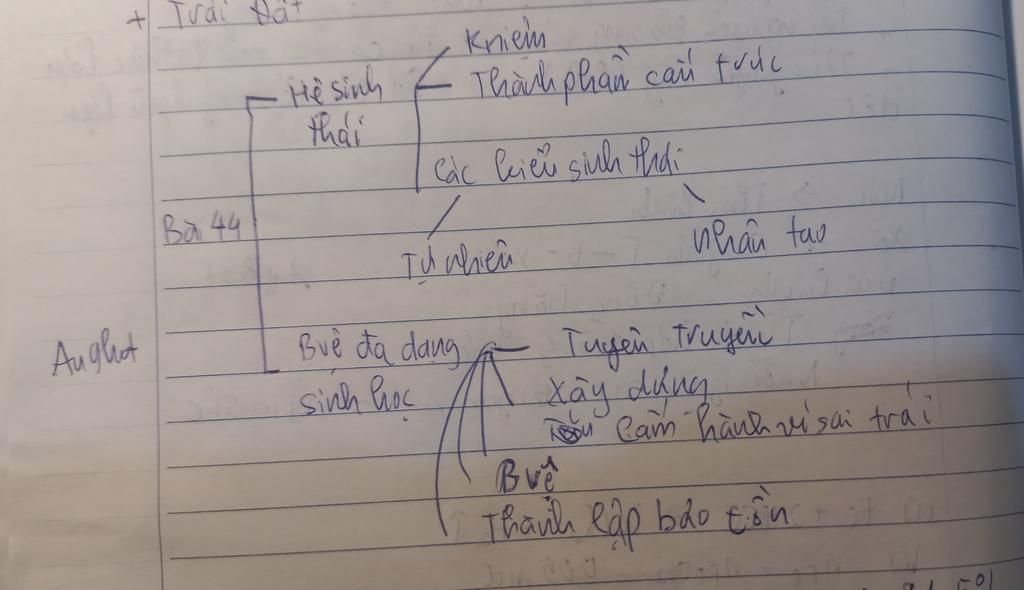 + Trái Đất
Kniệm
Hệ sinh thái
Thành phần cấu trúc
Các kiểu sinh thái
Bài 44
Tự nhiên
nhân tạo
Bvệ đa dạng sinh học
Tuyên truyền
Xây dựng
Cấm hành vi sai trái
Bvệ
Thành lập bảo tồn